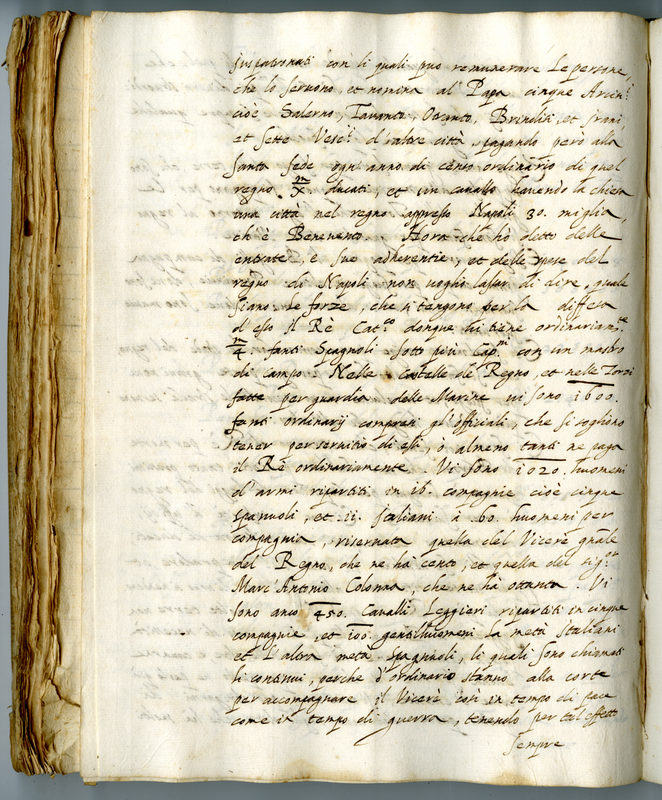 juspatronati con li quali può remunerare Le persone,
che lo servono, et nomina al Papa cinque Arciv.i
cioè Salerno, Taranto, Otranto, Brindisi, et Trani,
et sette Vesc.i d'altre città, pagando però alla
Santa sede ogni anno di censo ordinario di quel
regno X/m ducati, et un cavallo havendo la chiesa
una città nel regno appresso Napoli 30. miglia,
ch'è Benevento. Hora che hò detto delle
entrate, e sue adherentie, et delle spese del
regno di Napoli non voglio lassar di dire, quale
siano le forze, che si tengono per la diffesa
d'esso il Rè Cat.co donque hi tiene ordinariam.te
4/m fanti Spagnoli sotto più Cap.ni con un mastro
di campo. Nelle Castelle del Regno, et nelle Torri
fatte per guardia delle Marine vi sono 1600.
fanti ordinarij compresi gl'officiali, che si vogliono
tener per servitio di essi, ò almeno tanti ne paga
il Rè ordinariamente. Vi sono 1020. huomeni
d'armi ripartiti in 16. compagnie cioè cinque
spanuoli, et .11. Italiani à 60. huomeni per
compagnia, riservata quella del Vicerè gnãle
del Regno, che ne hà cento, et quella del sig.or
Marc'Antonio Colonna, che ne hà ottanta. Vi
sono anco 450. Cavalli Leggieri ripartiti in cinque
compagnie, et 100. gentilhuomeni La metà Italiani
et L'altra metà Spagnuoli, li quali sono chiamati
li continui, perche d'ordinario stanno alla corte
per accompagnare il Vicerè così in tempo di pace
come in tempo di guerra, tenendo per tal effetto
sempre